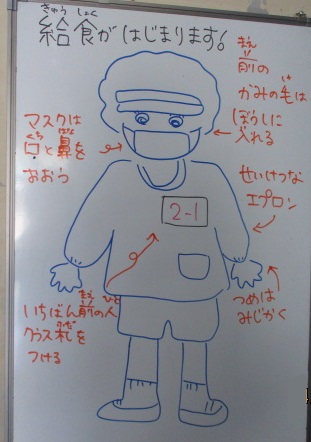 きゅう しょく
給食がはじまります。
まえ
前の
かみの毛は
け
ぼうしに
入れる
い
マスクは
くち はな
口と鼻を
おおう
せいけつな
エプロン
2-1
つめは
みじかく
まえ ひと
いちばん前の人
クラス札を
ふだ
つける